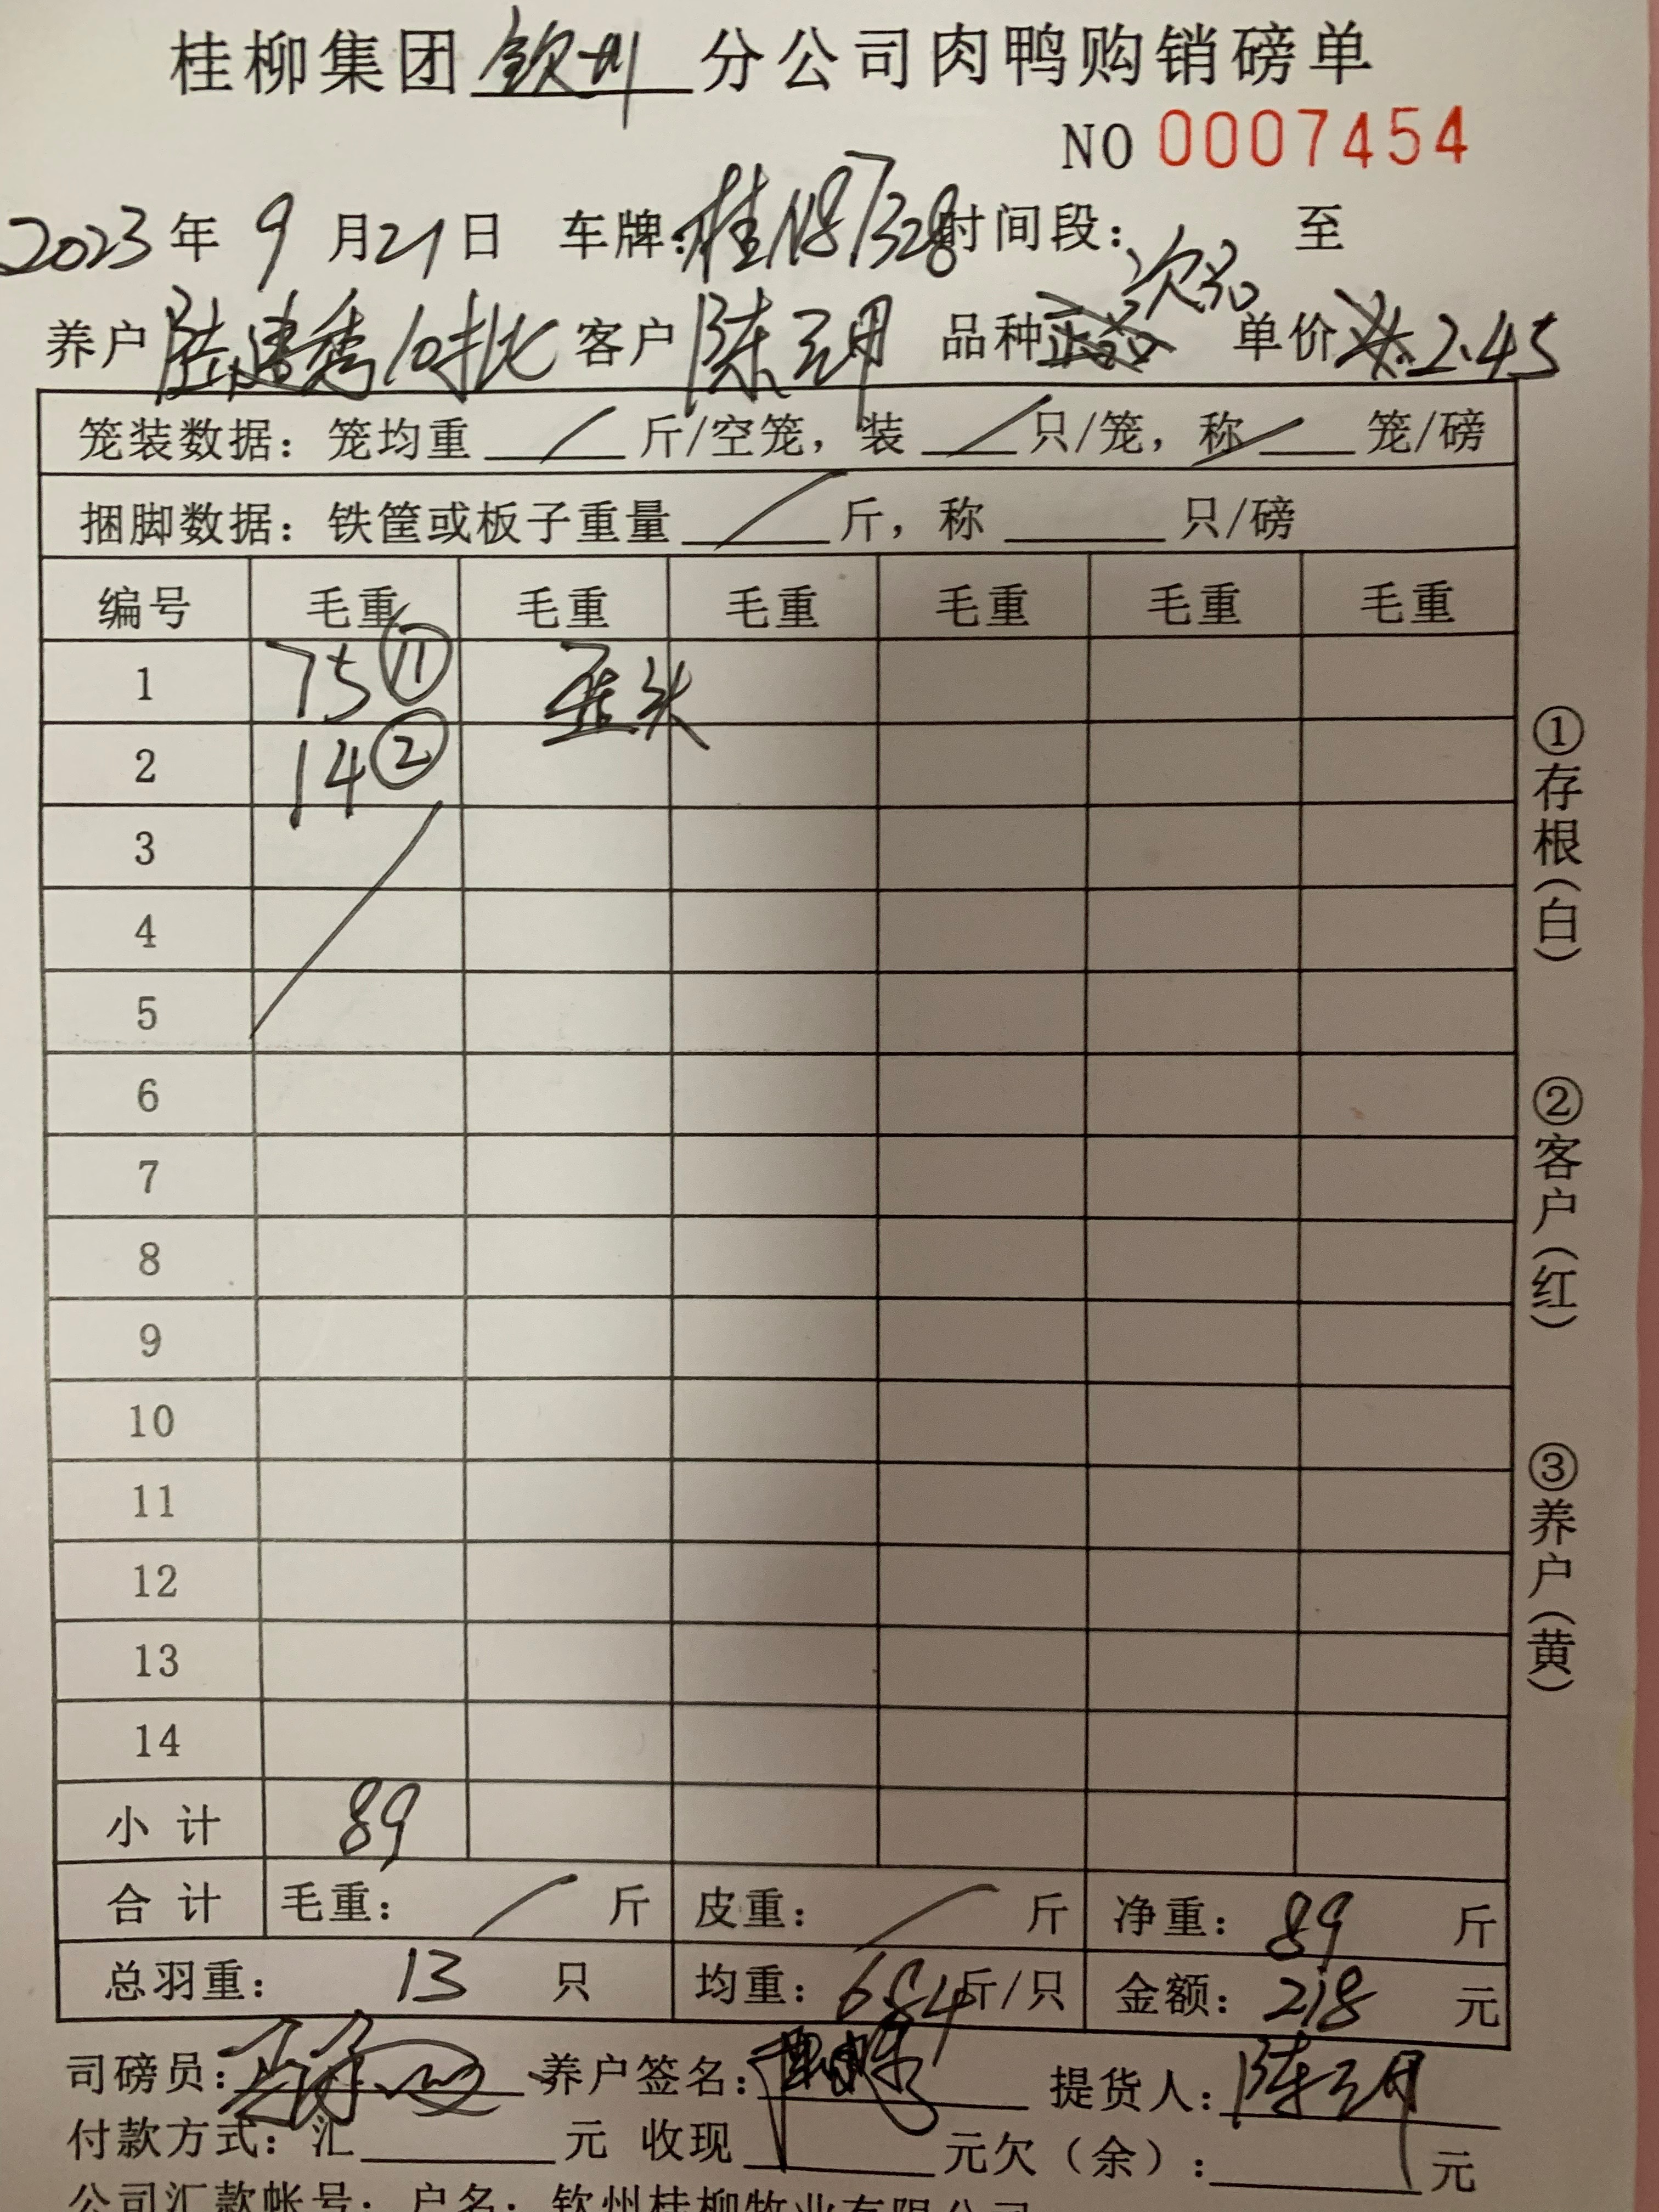 桂柳集团钦州分公司肉鸭购销磅单
NO 0007454
2023年9月21日 车牌:桂N87328时间段: 至
养户陆建秀10批 客户陈三明 品种次品 单价2.45
笼装数据:笼均重/斤/空笼,装/只/笼,称/笼/磅
捆脚数据:铁筐或板子重量/斤,称 只/磅
编号 毛重 毛重 毛重 毛重 毛重 毛重
1 75⑪ 歪头
2 14②
3
4
5
6
7
8
9
10
11
12
13
14
小计 89
合计 毛重:/斤 皮重:/斤 净重:89斤
总羽重:13只 均重:6.84斤/只 金额:218元
司磅员: 养户签名: 提货人:陈三明
付款方式:汇 元 收现 元欠(余): 元
公司汇款帐号:户名:钦州桂柳牧业有限公司
①存根(白)
②客户(红)
③养户(黄)